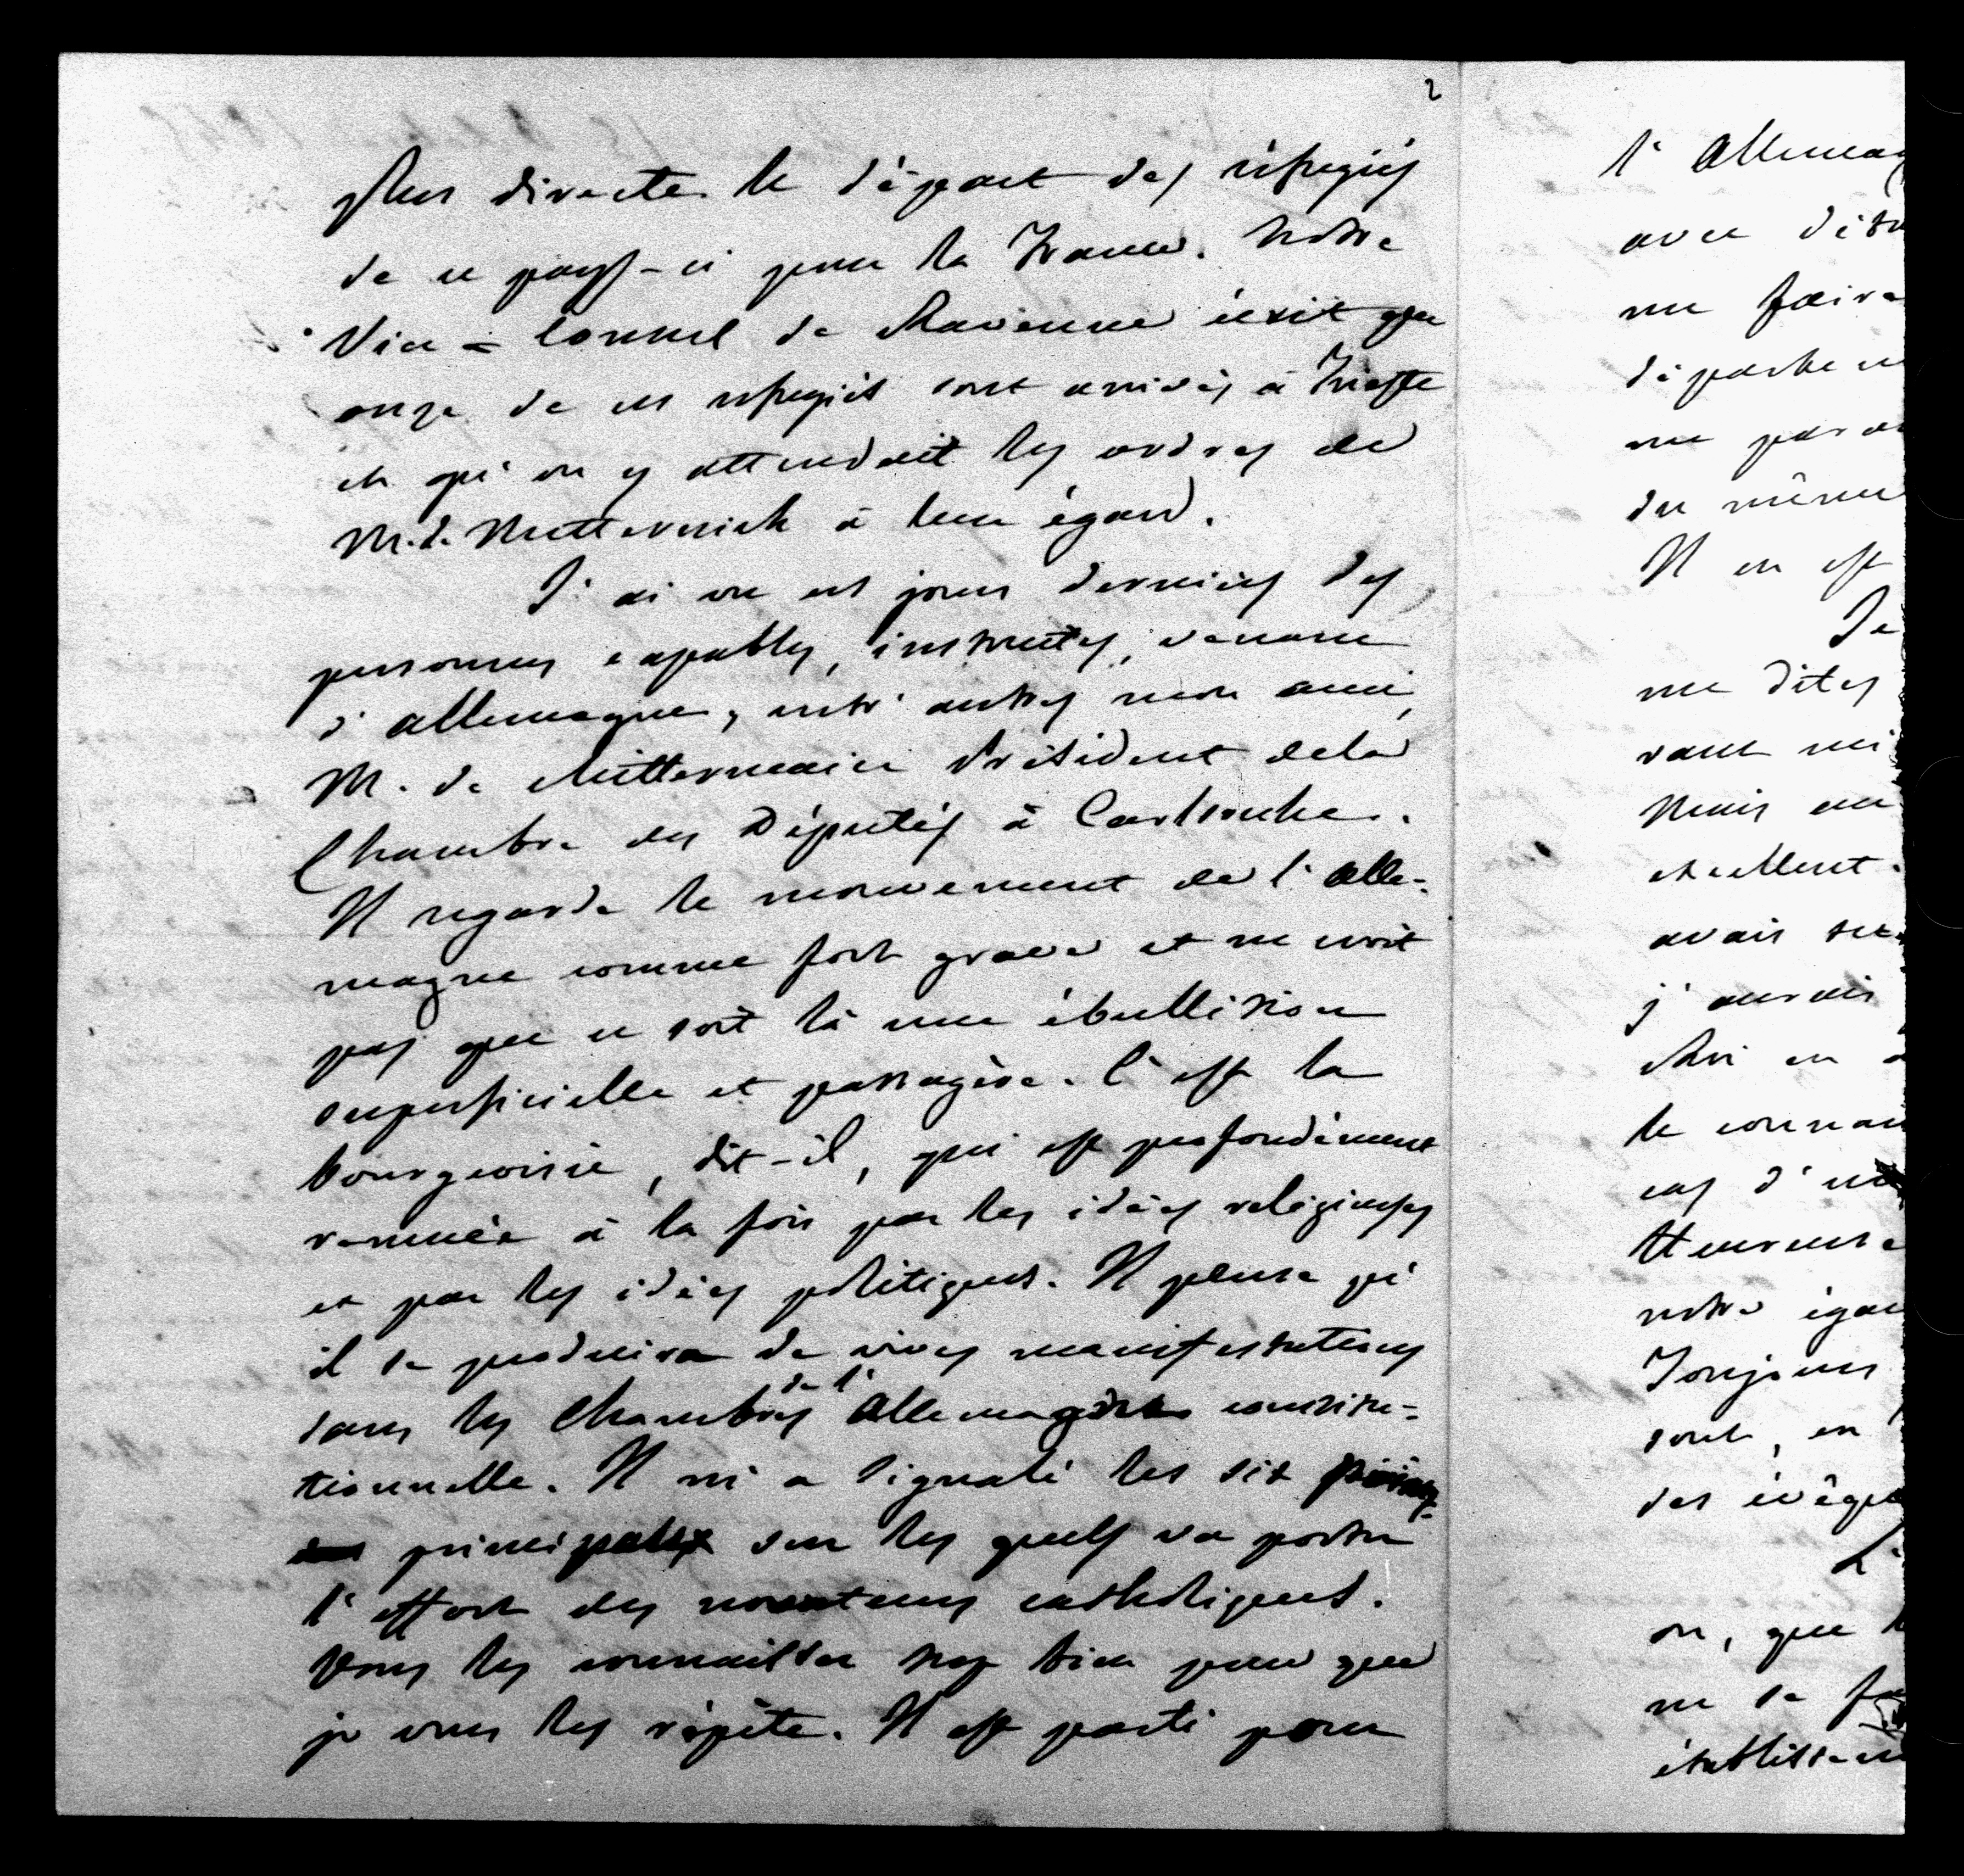 2
plus directe le départ des réfugiés
de ce pays-ci pour la France. Notre
Vice-Consul de Ravenne écrit que
onze de ces réfugiés sont arrivés à Trieste
et qu'on y attendait les ordres de
M. de Metternich à leur égard.
J'ai vu ces jours derniers des
personnes capables, instruites, venant
d'Allemagne, entr'autres mon ami,
M. de Mittermaier Président de la
Chambre des Députés à Carlsruhe.
Il regarde le mouvement de l'Alle-
magne comme fort grave et ne croit
pas que ce soit là une ébullition
superficielle et passagère. C'est la
bourgeoisie, dit-il, qui est profondément
remuée à la fois par les idées religieuses
et par les idées politiques. Il pense qu'
il se produira de vives manifestations
dans les Chambres de l'Allemagne constitu-
tionnelle. Il m'a signalé les six points
principaux sur lesquels va porter
l'effort des novateurs catholiques.
Vous les connaissez trop bien pour que
je vous les répète. Il est parti pour
l'Allemag
avec
me faire
dépêche
me
du même
Il en est
Je
me dites
vant
Mais
excellent.
avais
j'aurais
Roi en
le
cas d'
Heureuse
notre
Toujours
sont, en
des évêqu
L'
on, que
ne se
établissem